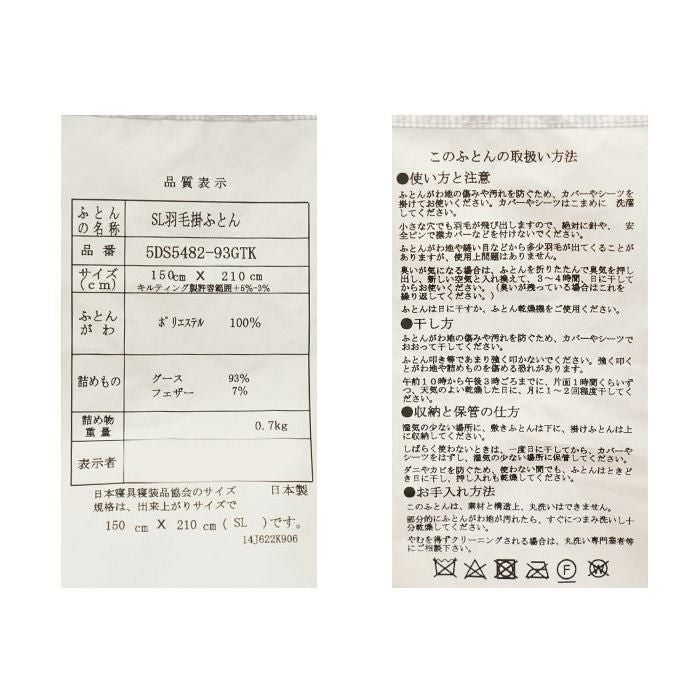 品質表示
ふとんの名称 SL羽毛掛ふとん
品番 5DS5482-93GTK
サイズ(cm) 150cm X 210cm
キルティング製許容範囲+5%-3%
ふとんがわ ポリエステル 100%
詰めもの グース 93%
フェザー 7%
詰め物重量 0.7kg
表示者
日本寝具寝装品協会のサイズ 日本製
規格は、出来上がりサイズで
150 cm X 210 cm ( SL ) です。
14J622K906
このふとんの取扱い方法
●使い方と注意
ふとんがわ地の傷みや汚れを防ぐため、カバーやシーツを
掛けてお使いください。カバーやシーツはこまめに 洗濯
してください。
小さな穴でも羽毛が飛び出しますので、絶対に針や、 安
全ピンで襟カバーなどを付けないでください。
ふとんがわ地や縫い目などから多少羽毛が出てくることが
ありますが、使用上問題はありません。
臭いが気になる場合は、ふとんを折りたたんで臭気を押し
出し、新しい空気と入れ換えて、3〜4時間、日に干して
からお使いください。(臭いが残っている場合はこれを
繰り返してください。)
ふとんは日に干すか、ふとん乾燥機をご使用ください。
●干し方
ふとんがわ地の傷みや汚れを防ぐため、カバーやシーツで
おおって干してください。
ふとん叩き等であまり強く叩かないでください。強く叩く
とがわ地や詰めものを傷める恐れがあります。
午前10時から午後3時ごろまでに、片面1時間くらいず
つ、天気のよい乾燥した日に、月に1〜2回程度干してく
ださい。
●収納と保管の仕方
湿気の少ない場所に、敷きふとんは下に、掛けふとんは上
に収納してください。
しばらく使わないときは、一度日に干してから、カバーや
シーツをはずし、湿気の少ない場所に保管してください。
ダニやカビを防ぐため、使わない間でも、ふとんはときど
き日に干し、押し入れも乾燥してください。
●お手入れ方法
このふとんは、素材と構造上、丸洗いはできません。
部分的にふとんがわ地が汚れたら、すぐにつまみ洗いし十
分乾燥してください。
やむを得ずクリーニングされる場合は、丸洗い専門業者等
にご相談下さい。
F
W